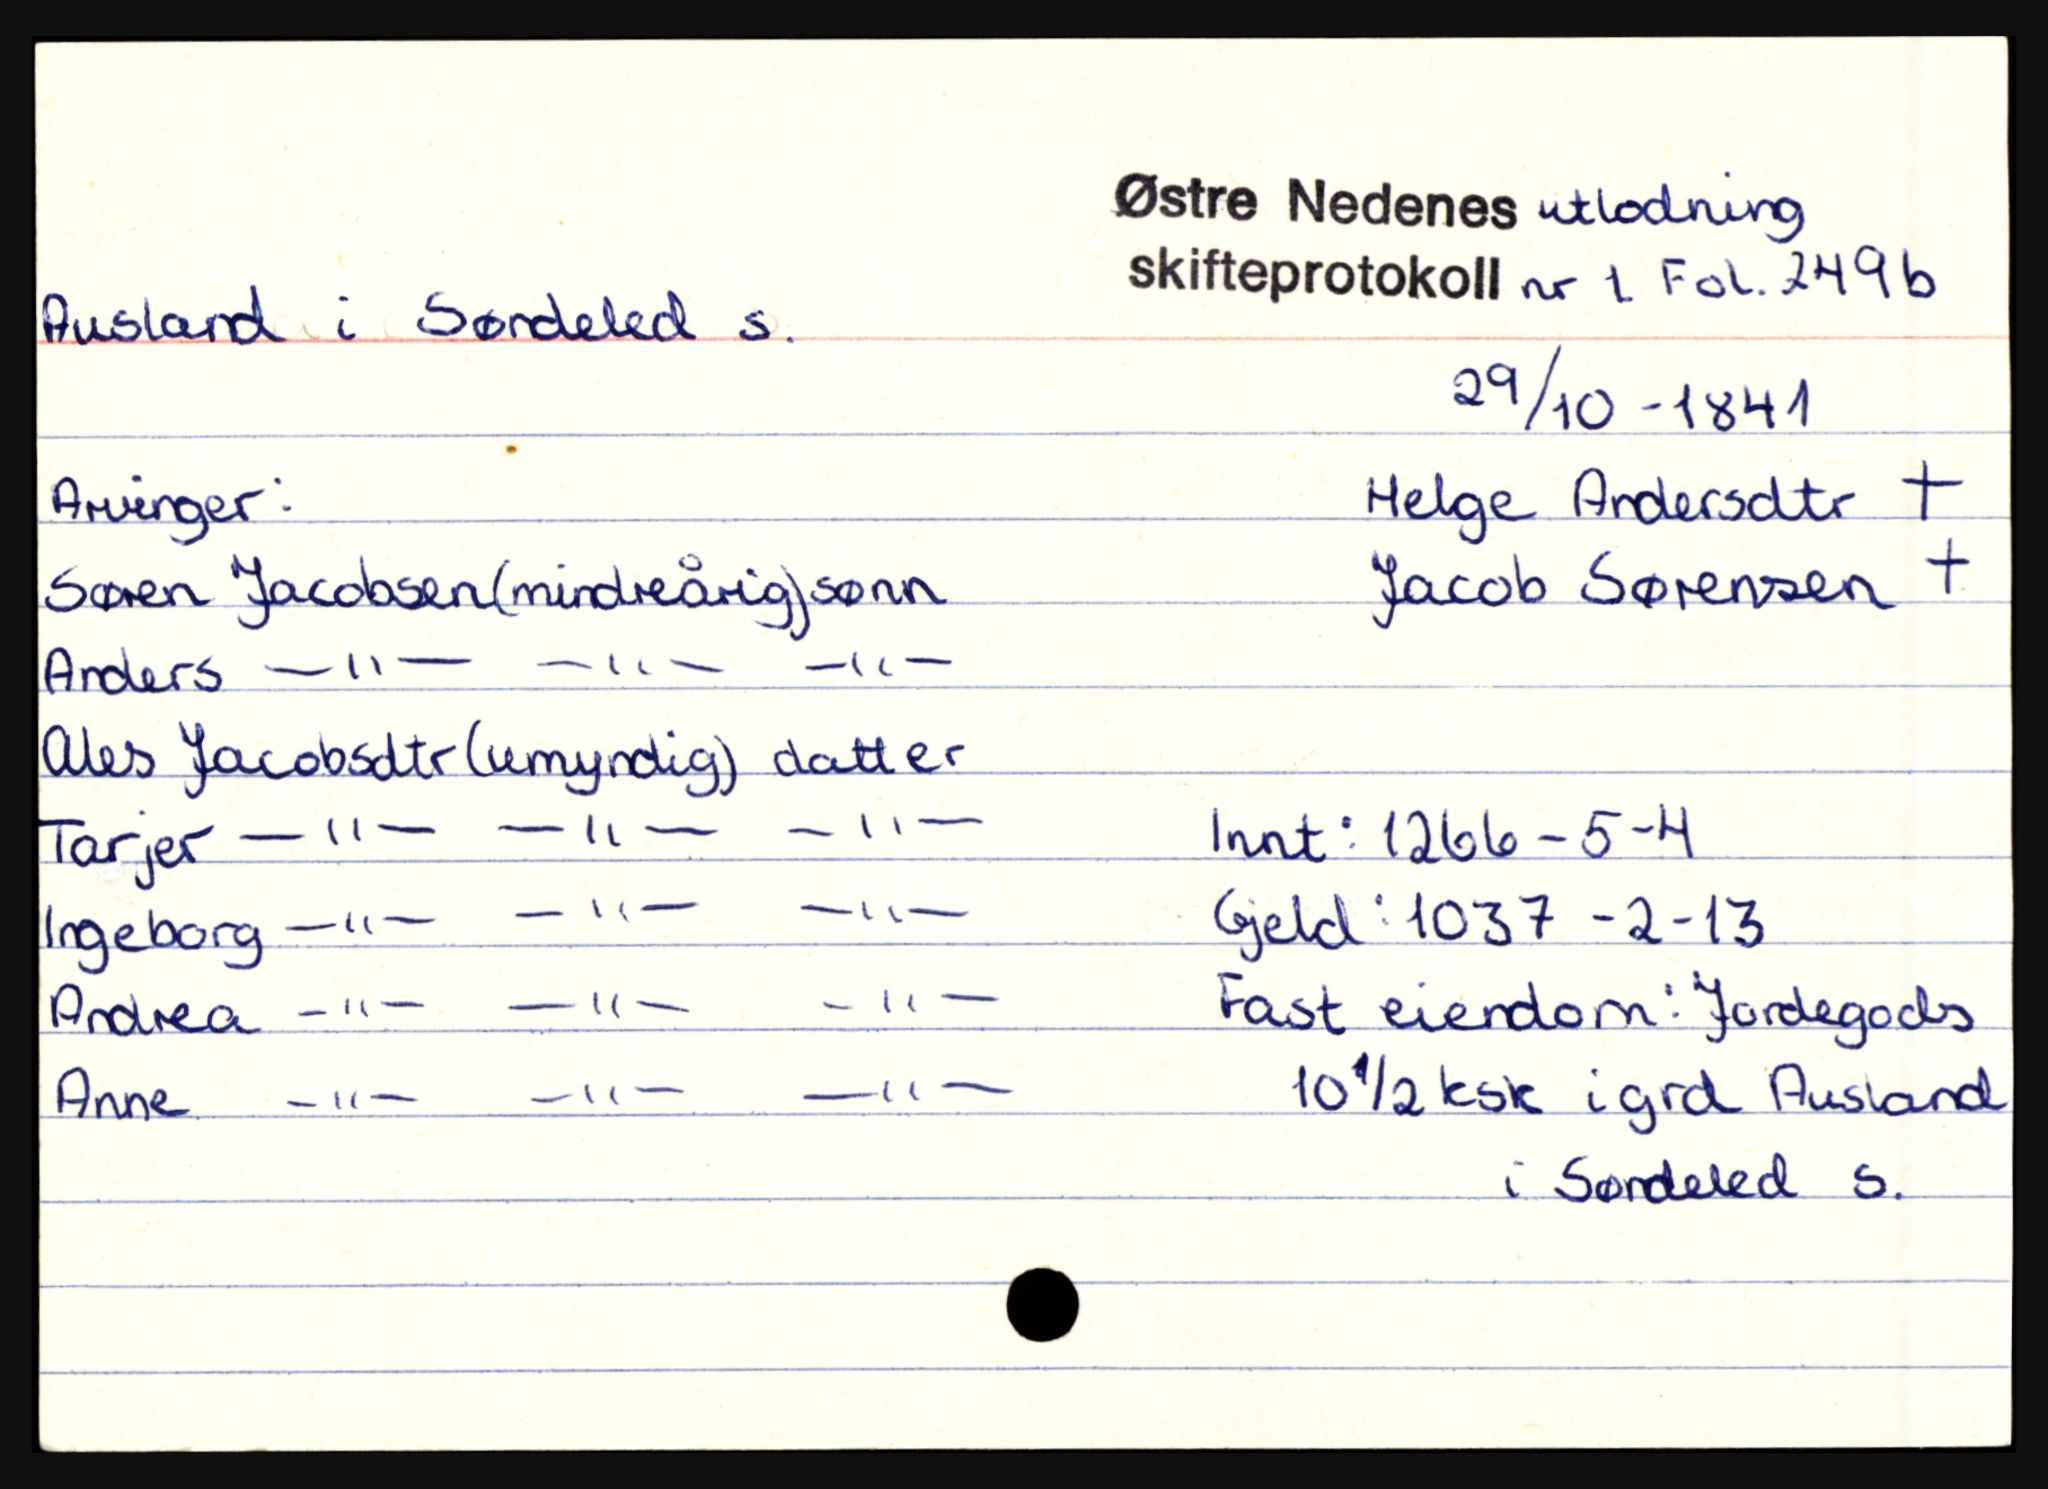 Østre Nedenes utlodning
skifteprotokoll nr 1 Fol. 249b
Ausland i Søndeled s.
29/10 - 1841
Arvinger:
Helge Andersdtr †
Søren Jacobsen (mindreårig) sønn
Jacob Sørensen †
Anders —"— —"— —"—
Ales Jacobsdtr (umyndig) datter
Tarjer —"— —"— —"—
Innt: 1266 - 5 - 4
Ingeborg —"— —"— —"—
Gjeld: 1037 - 2 - 13
Andrea —"— —"— —"—
Fast eiendom: Jordegods
Anne —"— —"— —"—
10 1/2 ksk i grd Ausland
i Søndeled s.